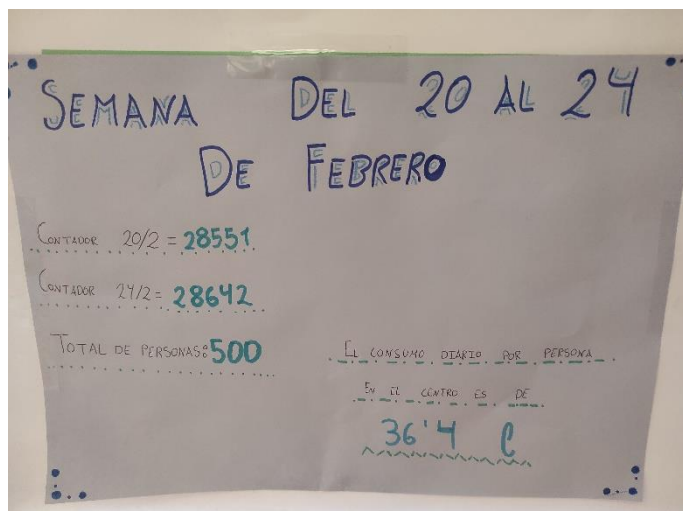 SEMANA DEL 20 AL 24
DE FEBRERO
CONTADOR 20/2 = 28551
CONTADOR 24/2 = 28642
TOTAL DE PERSONAS: 500
EL CONSUMO DIARIO POR PERSONA
EN EL CENTRO ES DE
36'4 l